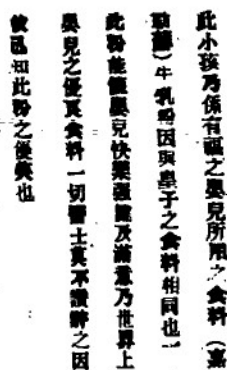 此小孩乃係有福之嬰兒所用之食料（嘉
）牛乳粉因與皇子之食料相同也
此粉能使嬰兒快樂強健及滿意乃世界上
嬰兒之優良食料一切醫士莫不讚許之因
彼區知此粉之優美也